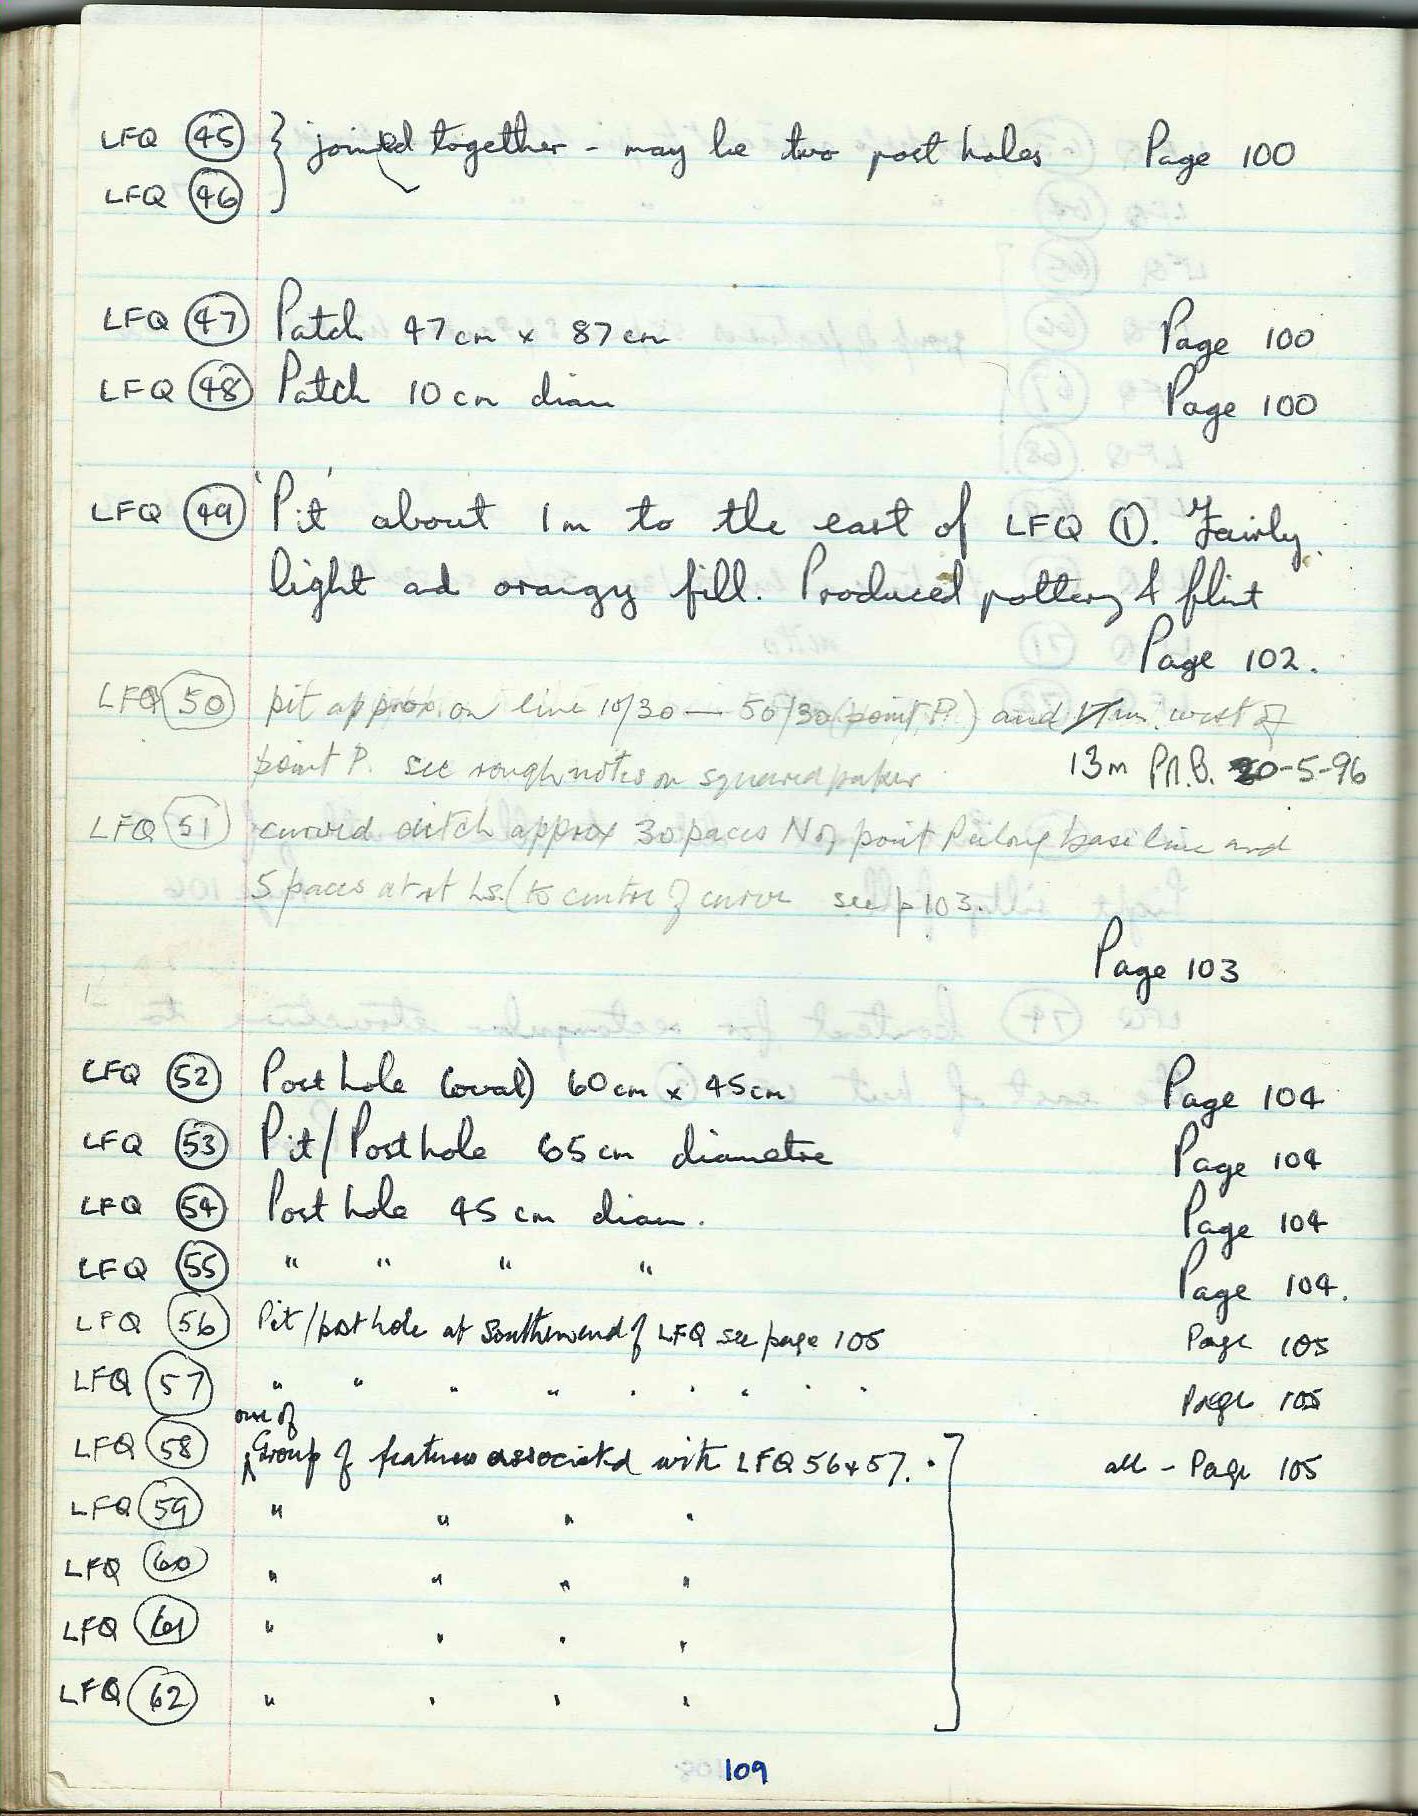 LFQ 45 } joined together - may be two post holes Page 100
LFQ 46
LFQ 47 Patch 47cm x 87cm Page 100
LFQ 48 Patch 10cm diam Page 100
LFQ 49 'Pit' about 1m to the east of LFQ 1. Fairly
light and orangy fill. Produced pottery & flint
Page 102.
LFQ 50 pit approx. on line 10/30 — 50/30 (point P.) and west of
point P. see rough notes on squared paper 13m P.M.B. 20-5-96
LFQ 51 curved ditch approx 30 paces N of point P along base line and
5 paces at rt Ls. (to centre of curve see p 103.
Page 103
LFQ 52 Post hole (oval) 60cm x 45cm Page 104
LFQ 53 Pit/Posthole 65cm diametre Page 104
LFQ 54 Post hole 45cm diam. Page 104
LFQ 55 " " " " Page 104.
LFQ 56 Pit/posthole at Southern end of LFQ see page 105 Page 105
LFQ 57 " " " " " " " " " Page 105
one of
LFQ 58 Group of features associated with LFQ 56 & 57. all - Page 105
LFQ 59 " " " "
LFQ 60 " " " "
LFQ 61 " " " "
LFQ 62 " " " "
109